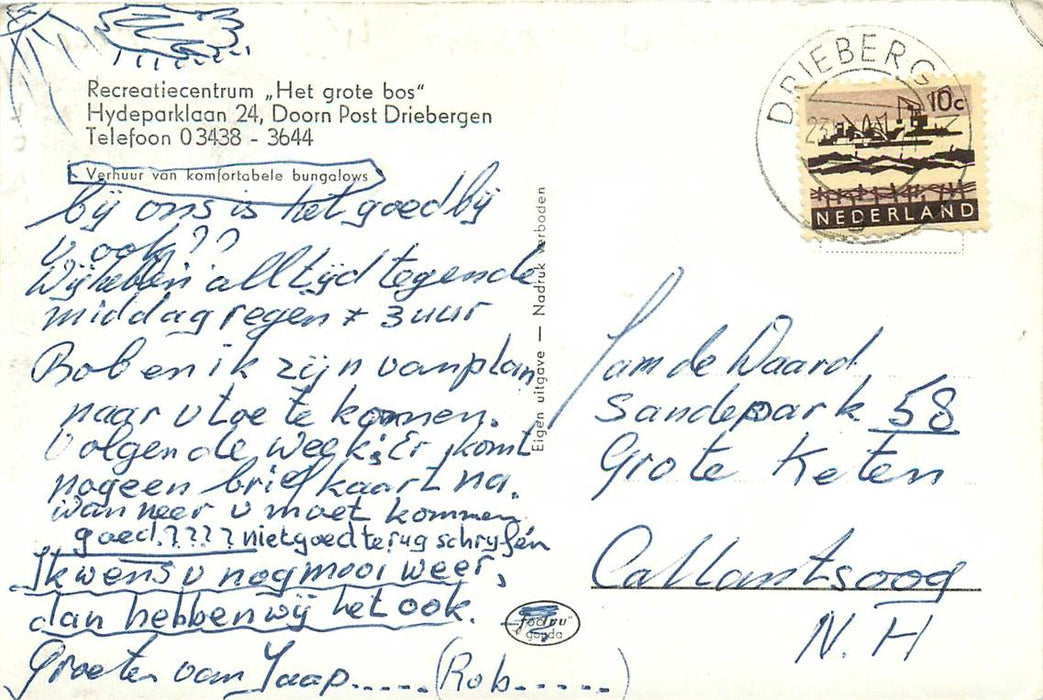 Recreatiecentrum „Het grote bos“
Hydeparklaan 24, Doorn Post Driebergen
Telefoon 03438 - 3644
Verhuur van komfortabele bungalows
bij ons is het goed bij
u ook??
Wij hebben alltijd tegen de
middag regen * 3 uur
Rob en ik zijn van plan
naar u toe te komen.
Volgende week; Er komt
nog een briefkaart na.
wanneer u moet kommen
goed.???? niet goed terug schrijfen
Ik wens u nog mooi weer,
dan hebben wij het ook.
Groeten van Jaap..... (Rob......)
Eigen uitgave — Nadruk verboden
gouda
DRIEBERG
10c
NEDERLAND
fam de Waard
Sandepark 58
Grote Keten
Callantsoog
N.H